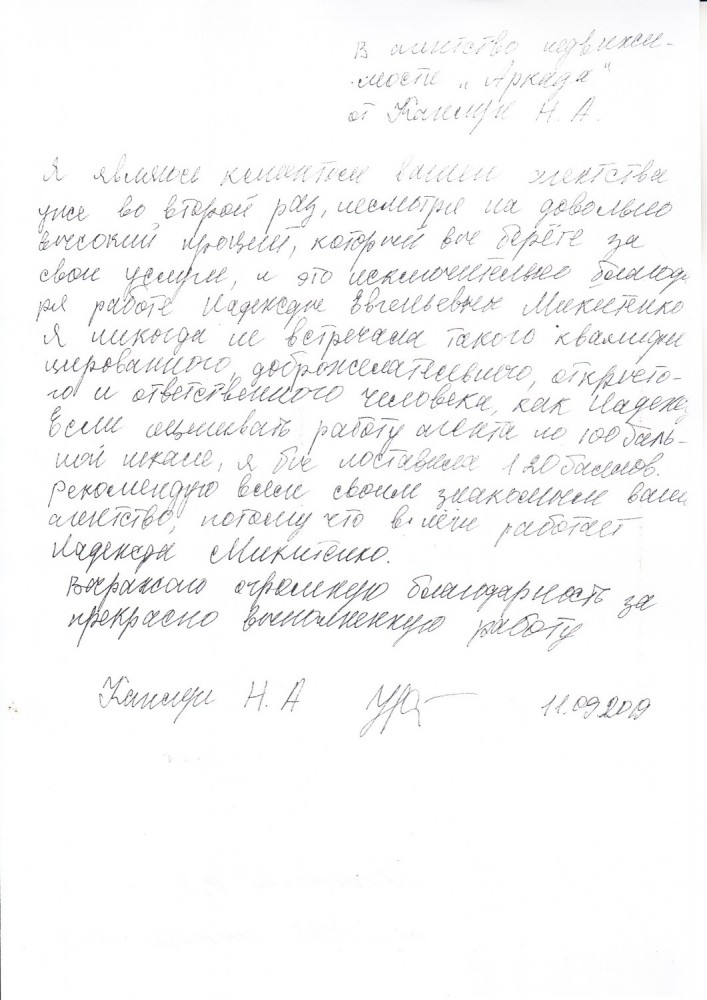 В агентство недвижи-
мости „Аркада"
от Н. А.
Я являюсь клиентом вашего агентства
уже во второй раз, несмотря на довольно
высокий процент, который вы берёте за
свои услуги, и это исключительно благода
ря работе Надежды Евгеньевны Микитенко
Я никогда не встречала такого квалифи
цированного, доброжелательного, открыто-
го и ответственного человека, как Надежд
Если оценивать работу агента по 100 баль-
ной шкале, я бы поставила 120 баллов.
Рекомендую всем своим знакомым ваше
агентство, потому что в нём работает
Надежда Микитенко.
Выражаю огромную благодарность за
прекрасно выполненную работу
Н. А 11.09.2019